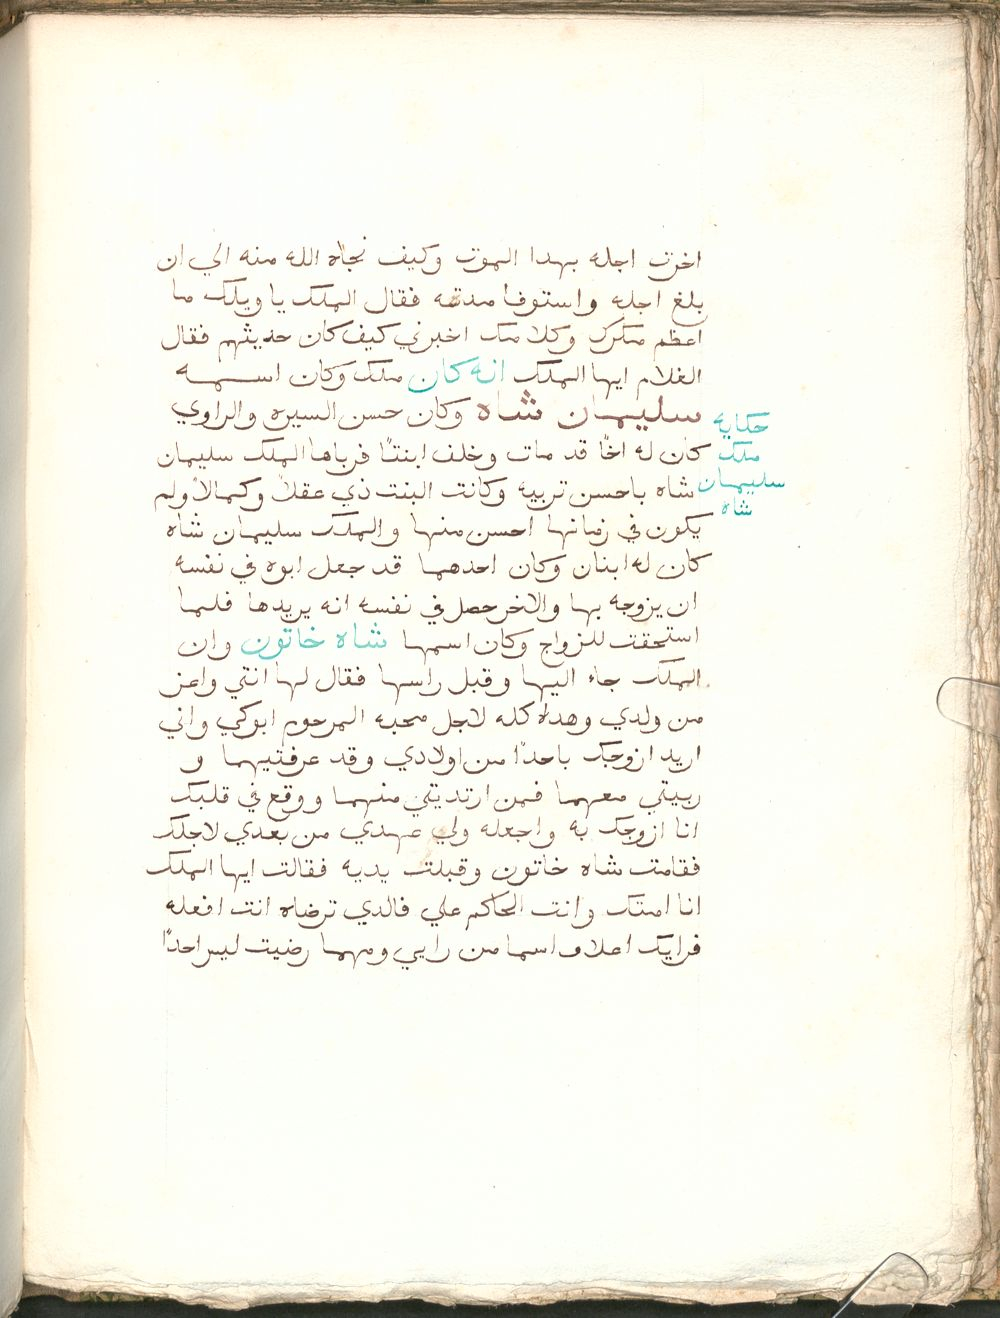 اخرت اجله بهدا الموت وكيف نجاه الله منه الي ان
بلغ اجله واستوفا مدته فقال الملك يا ويلك ما
اعظم مكرك وكلامك اخبرني كيف كان حديثهم فقال
الغلام ايها الملك انه كان ملك وكان اسمه
سليمان شاه وكان حسن السيره والراوي
كان له اخًا قد مات وخلف ابنتًا فرباها الملك سليمان
شاه باحسن تربيه وكانت البنت ذي عقلاً وكمالاً ولم
يكون في زمانها احسن منها والملك سليمان شاه
كان له ابنان وكان احدهما قد جعل ابوه في نفسه
ان يزوجه بها والاخر حصل في نفسه انه يريدها فلما
استحقت للزواج وكان اسمها شاه خاتون وان
الملك جاء اليها وقبل راسها فقال لها انتي واعز
من ولدي وهداه كله لاجل محبه المرحوم ابوكي واني
اريد ازوجك باحدًا من اولادي وقد عرفتيهما و
ربيتي معهما فمن ارتديتي منهما ووقع في قلبك
انا ازوجك به واجعله ولي عهدي من بعدي لاجلك
فقامت شاه خاتون وقبلت يديه فقالت ايها الملك
انا امتك وانت الحاكم علي فالدي ترضاه انت افعله
فرايك اعلا واسما من رايي ومهما رضيت ليس احدًا
حكايه
ملك
سليمان
شاه